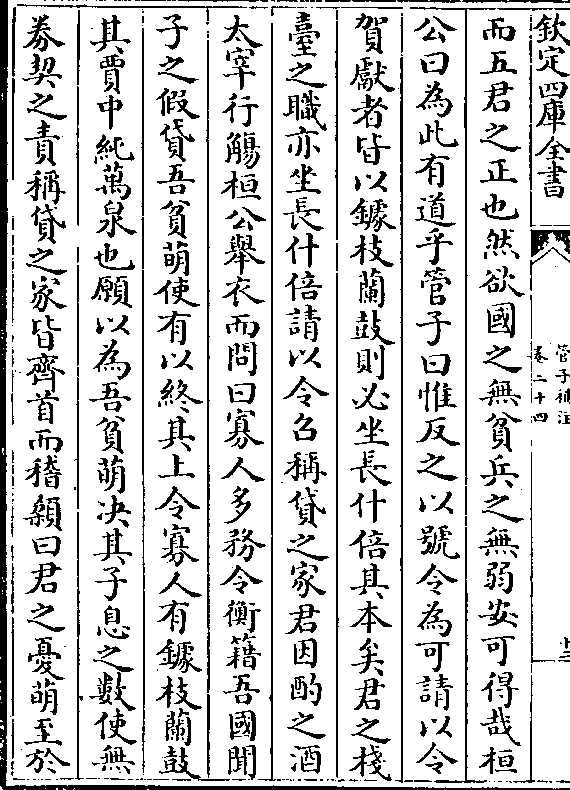 欽定四庫全書
管子補注
卷二十四
而五君之正也然欲國之無貧兵之無弱安可得哉桓
公曰為此有道乎管子曰惟反之以號令為可請以令
賀獻者皆以鐻枝蘭鼓則必坐長什倍其本矣君之棧
臺之職亦坐長什倍請以令召稱貸之家君因酌之酒
太宰行觴桓公舉衣而問曰寡人多務令衡籍吾國聞
子之假貸吾貧萌使有以終其上令寡人有鐻枝蘭鼓
其賈中純萬泉也願以為吾貧萌決其子息之數使無
券契之責稱貸之家皆齊首而稽顙曰君之憂萌至於